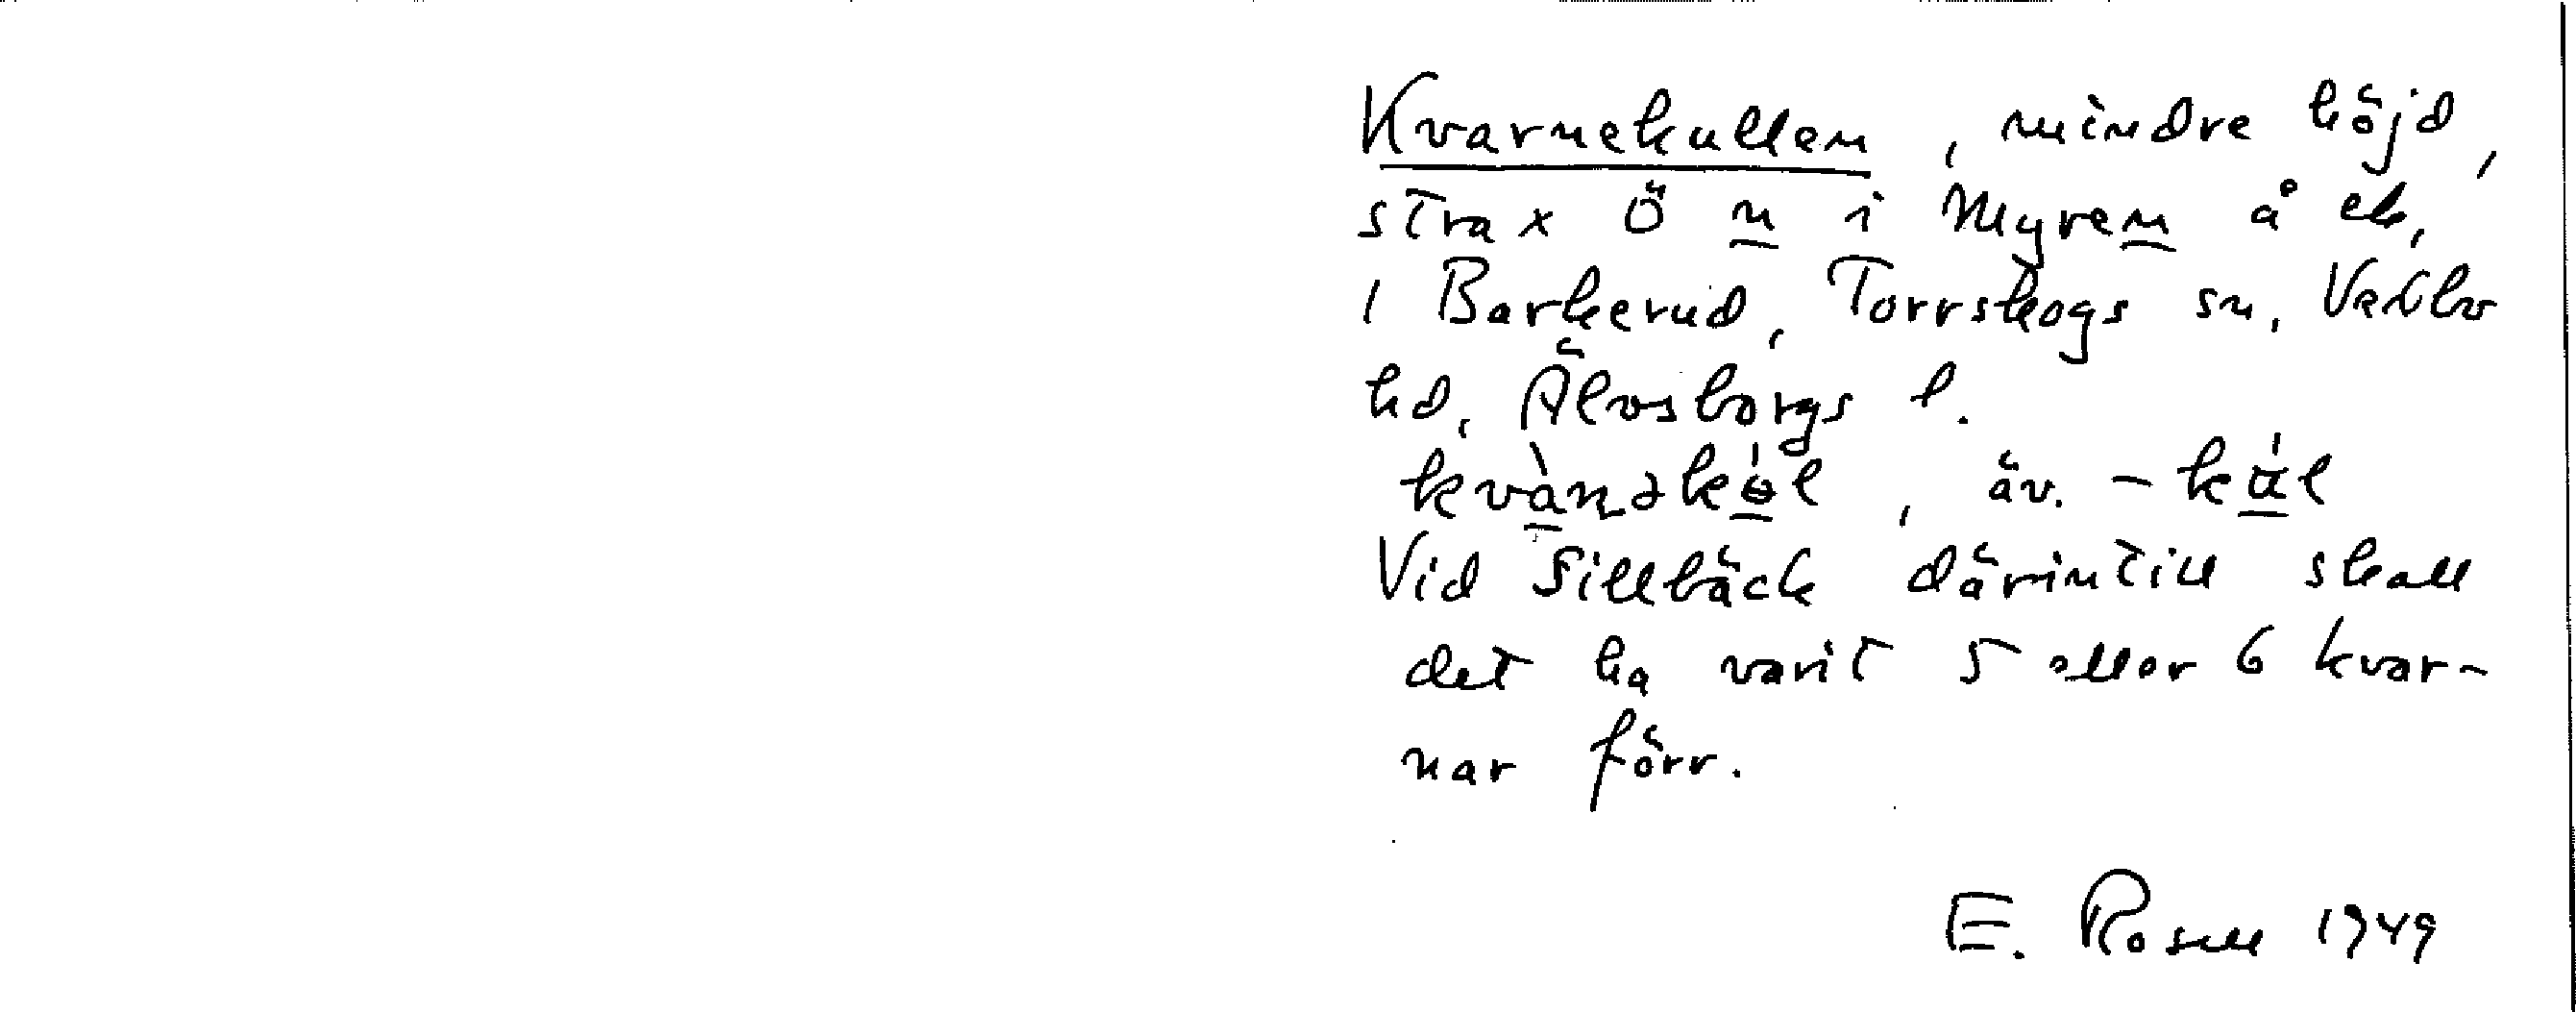 Kvarnekullen, mindre höjd,
strax Ö n i Myren å ek,
1 Barkerud, Torrskogs sn, Vedbo
hd, Älvsborgs l.
kvànəkɵ́l, äv. -kál
Vid Sillbäck därintill skall
det ha varit 5 eller 6 kvar-
nar förr.
E. Rosell 1949